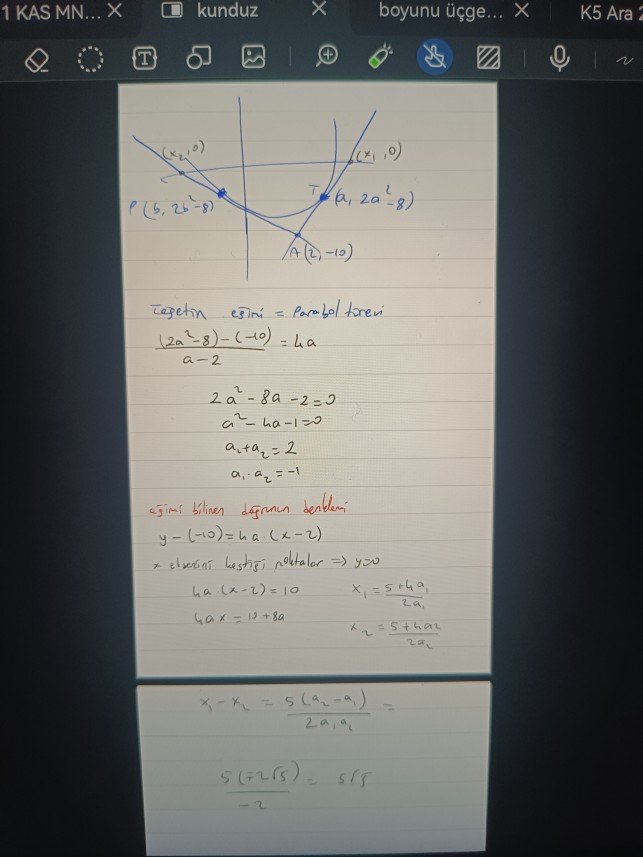 1 KAS MN...
kunduz
boyunu üçge...
K5 Ara 2
(x₂,0)
(x₁,0)
P(b, 2b²-8)
T
(a, 2a²-8)
A(2,-10)
Teğetin eğimi = Parabol türevi
(2a²-8)-(-10) / a-2 = 4a
2a²-8a-2=0
a²-4a-1=0
a₁+a₂=2
a₁.a₂=-1
eğimi bilinen doğrunun denklemi
y-(-10)=4a.(x-2)
x eksenini kestiği noktalar => y=0
4a.(x-2)=10
x₁=5+4a₁ / 2a₁
4ax=10+8a
x₂=5+4a2 / 2a₂
x₁-x₂ = 5(a₂-a₁) / 2a₁a₂ =
5(-2√5) / -2 = 5√5